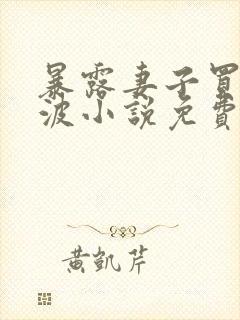 暴露妻子買
波小說免費
黃凱芹